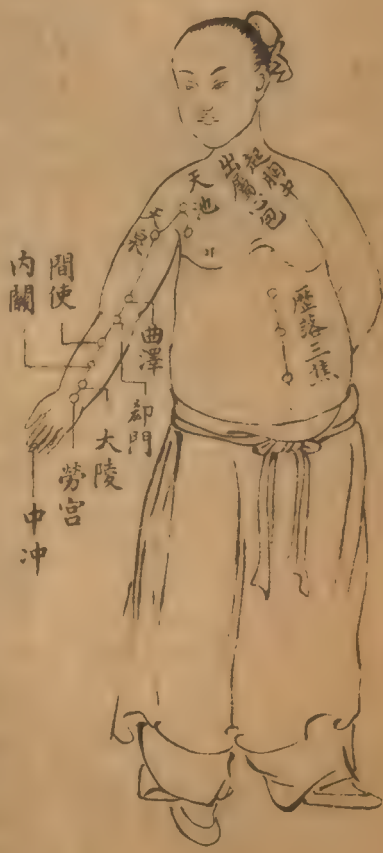 起胸中
出屬心包
天池
天泉
歷落三焦
曲澤
郄門
間使
内關
大陵
勞宮
中冲